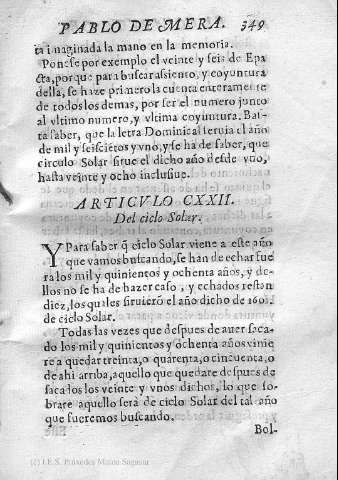 PABLO DE MERA. 349
ta imaginada la mano en la memoria.
Ponese por exemplo el veinte y seis de Epa
cta, porque para buscar assiento, y coyuntura
della, se haze primero la cuenta enteramente
de todos los demas, por ser el numero junto
al vltimo numero, y vltima coyuntura. Bas-
ta saber, que la letra Dominical seruia el año
de mil y seiscietos y vno, y se ha de saber, que
circulo Solar sirue el dicho año desde vno,
hasta veinte y ocho inclusiue.
ARTICVLO CXXII.
Del ciclo Solar.
Y Para saber q̃ ciclo Solar viene a este año
que vamos buscando, se han de echar fue
ra los mil y quinientos y ochenta años, y de
llos no se ha de hazer caso, y echados restan
diez, los quales siruierõ el año dicho de 1601.
de ciclo Solar.
Todas las vezes que despues de auer saca
do los mil y quinientos y ochenta años vinie
re a quedar treinta, o quarenta, o cincuenta, o
de ahi arriba, aquello que quedare despues de
sacados los veinte y vnos dichos, lo que so-
brare aquello será de ciclo Solar del tal año
que fueremos buscando.
Bol-
(c) I.E.S. Práxedes Mateo Sagasta